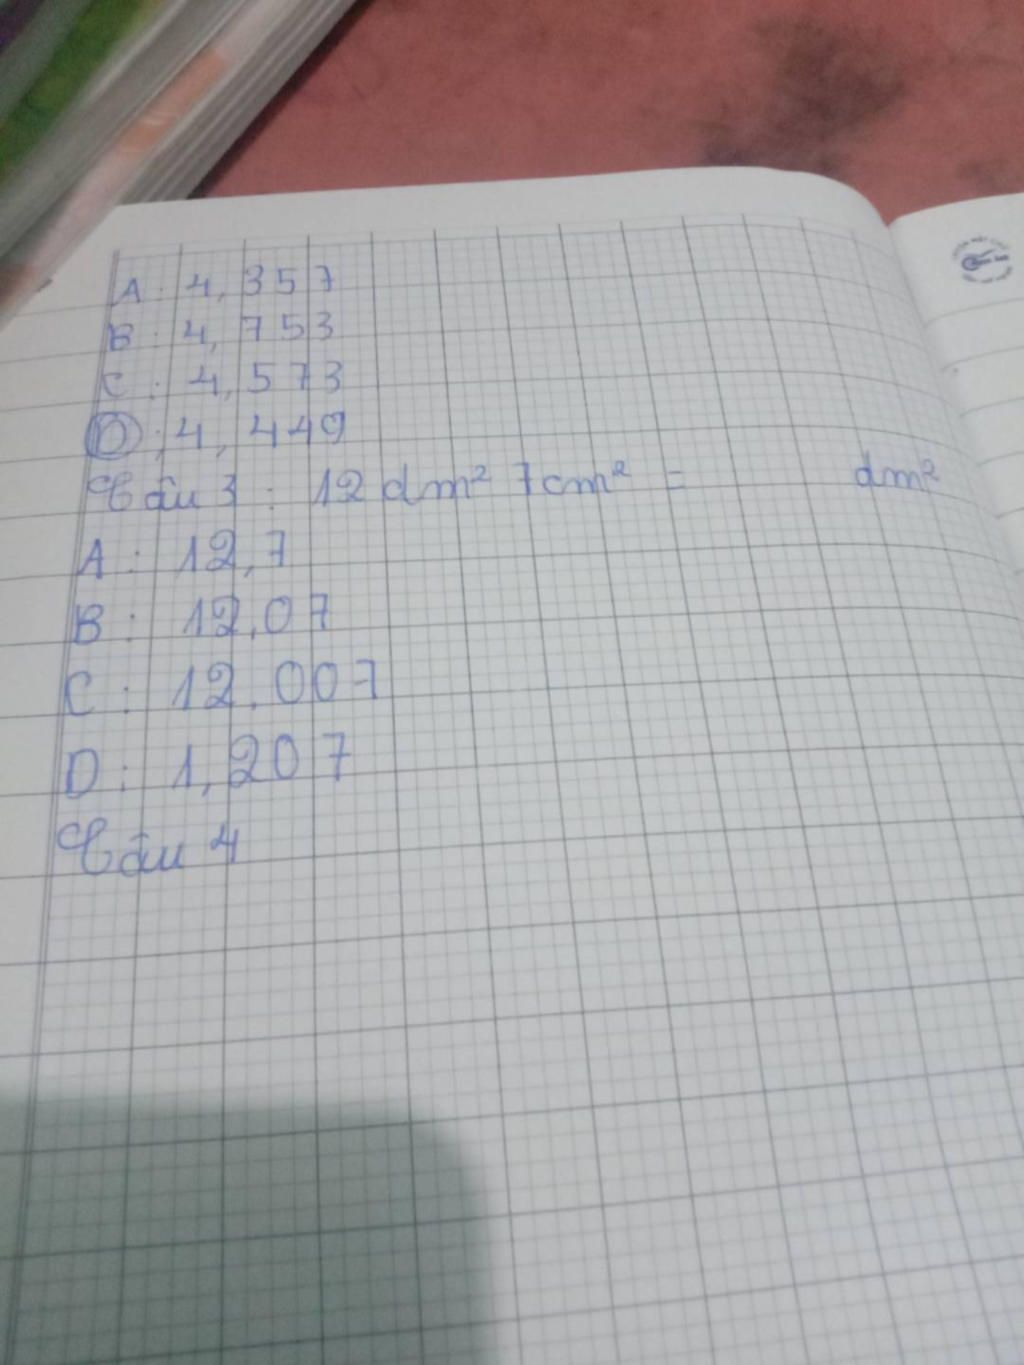 A : 4,357
B : 4,753
C : 4,573
D : 4,449
Câu 3 : 12 dm² 7cm² = dm²
A : 12,7
B : 12,07
C : 12,007
D : 1,207
Câu 4